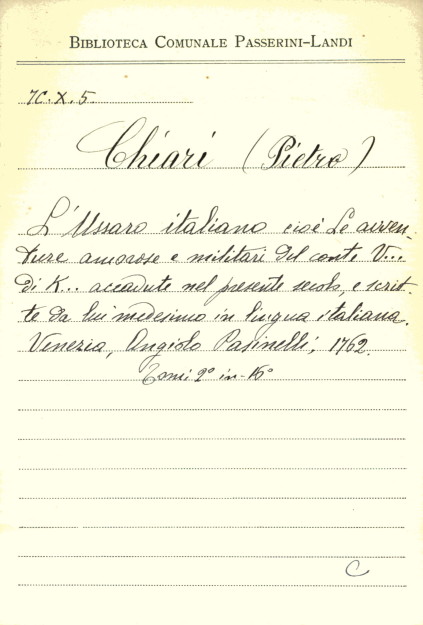 BIBLIOTECA COMUNALE PASSERINI-LANDI
7C.X.5.
Chiari (Pietro)
L'Ussaro italiano cioè Le avven-
ture amorose e militari del conte V...
di K... accadute nel presente secolo, e scrit-
te da lui medesimo in lingua italiana.
Venezia, Angiolo Pasinelli, 1762.
Tomi 2° in-16°
C